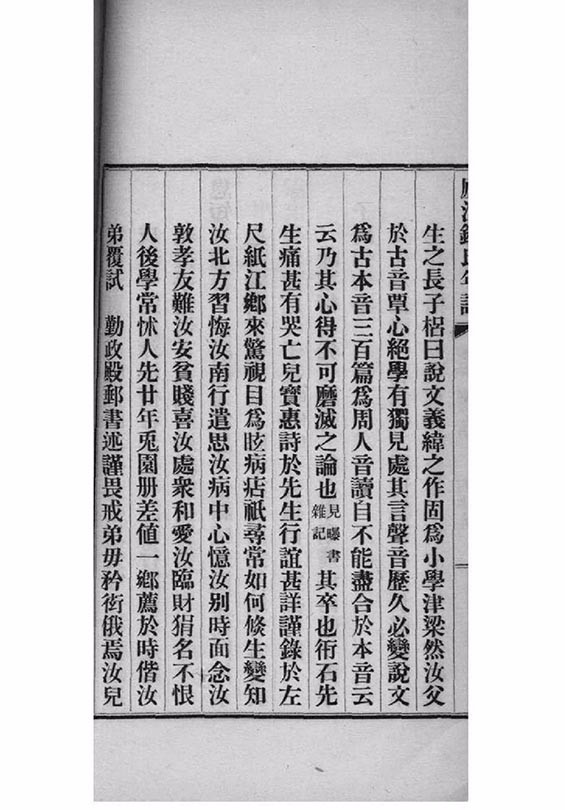 生之長子楷曰說文義緯之作固爲小學津梁然汝父
於古音覃心絕學有獨見處其言聲音歷久必變說文
爲古本音三百篇爲周人音讀自不能盡合於本音云
云乃其心得不可磨滅之論也見曝書雜記其卒也衎石先
生痛甚有哭亡兒寶惠詩於先生行誼甚詳謹錄於左
尺紙江鄉來驚視目爲眩病痁祇尋常如何倐生變知
汝北方習悔汝南行遣思汝病中心憶汝别時面念汝
敦孝友難汝安貧賤喜汝處衆和愛汝臨財狷名不恨
人後學常怵人先廿年兎園册差值一鄉薦於時偕汝
弟覆試　勤政殿郵書述謹畏戒弟毋矜衒俄焉汝兒